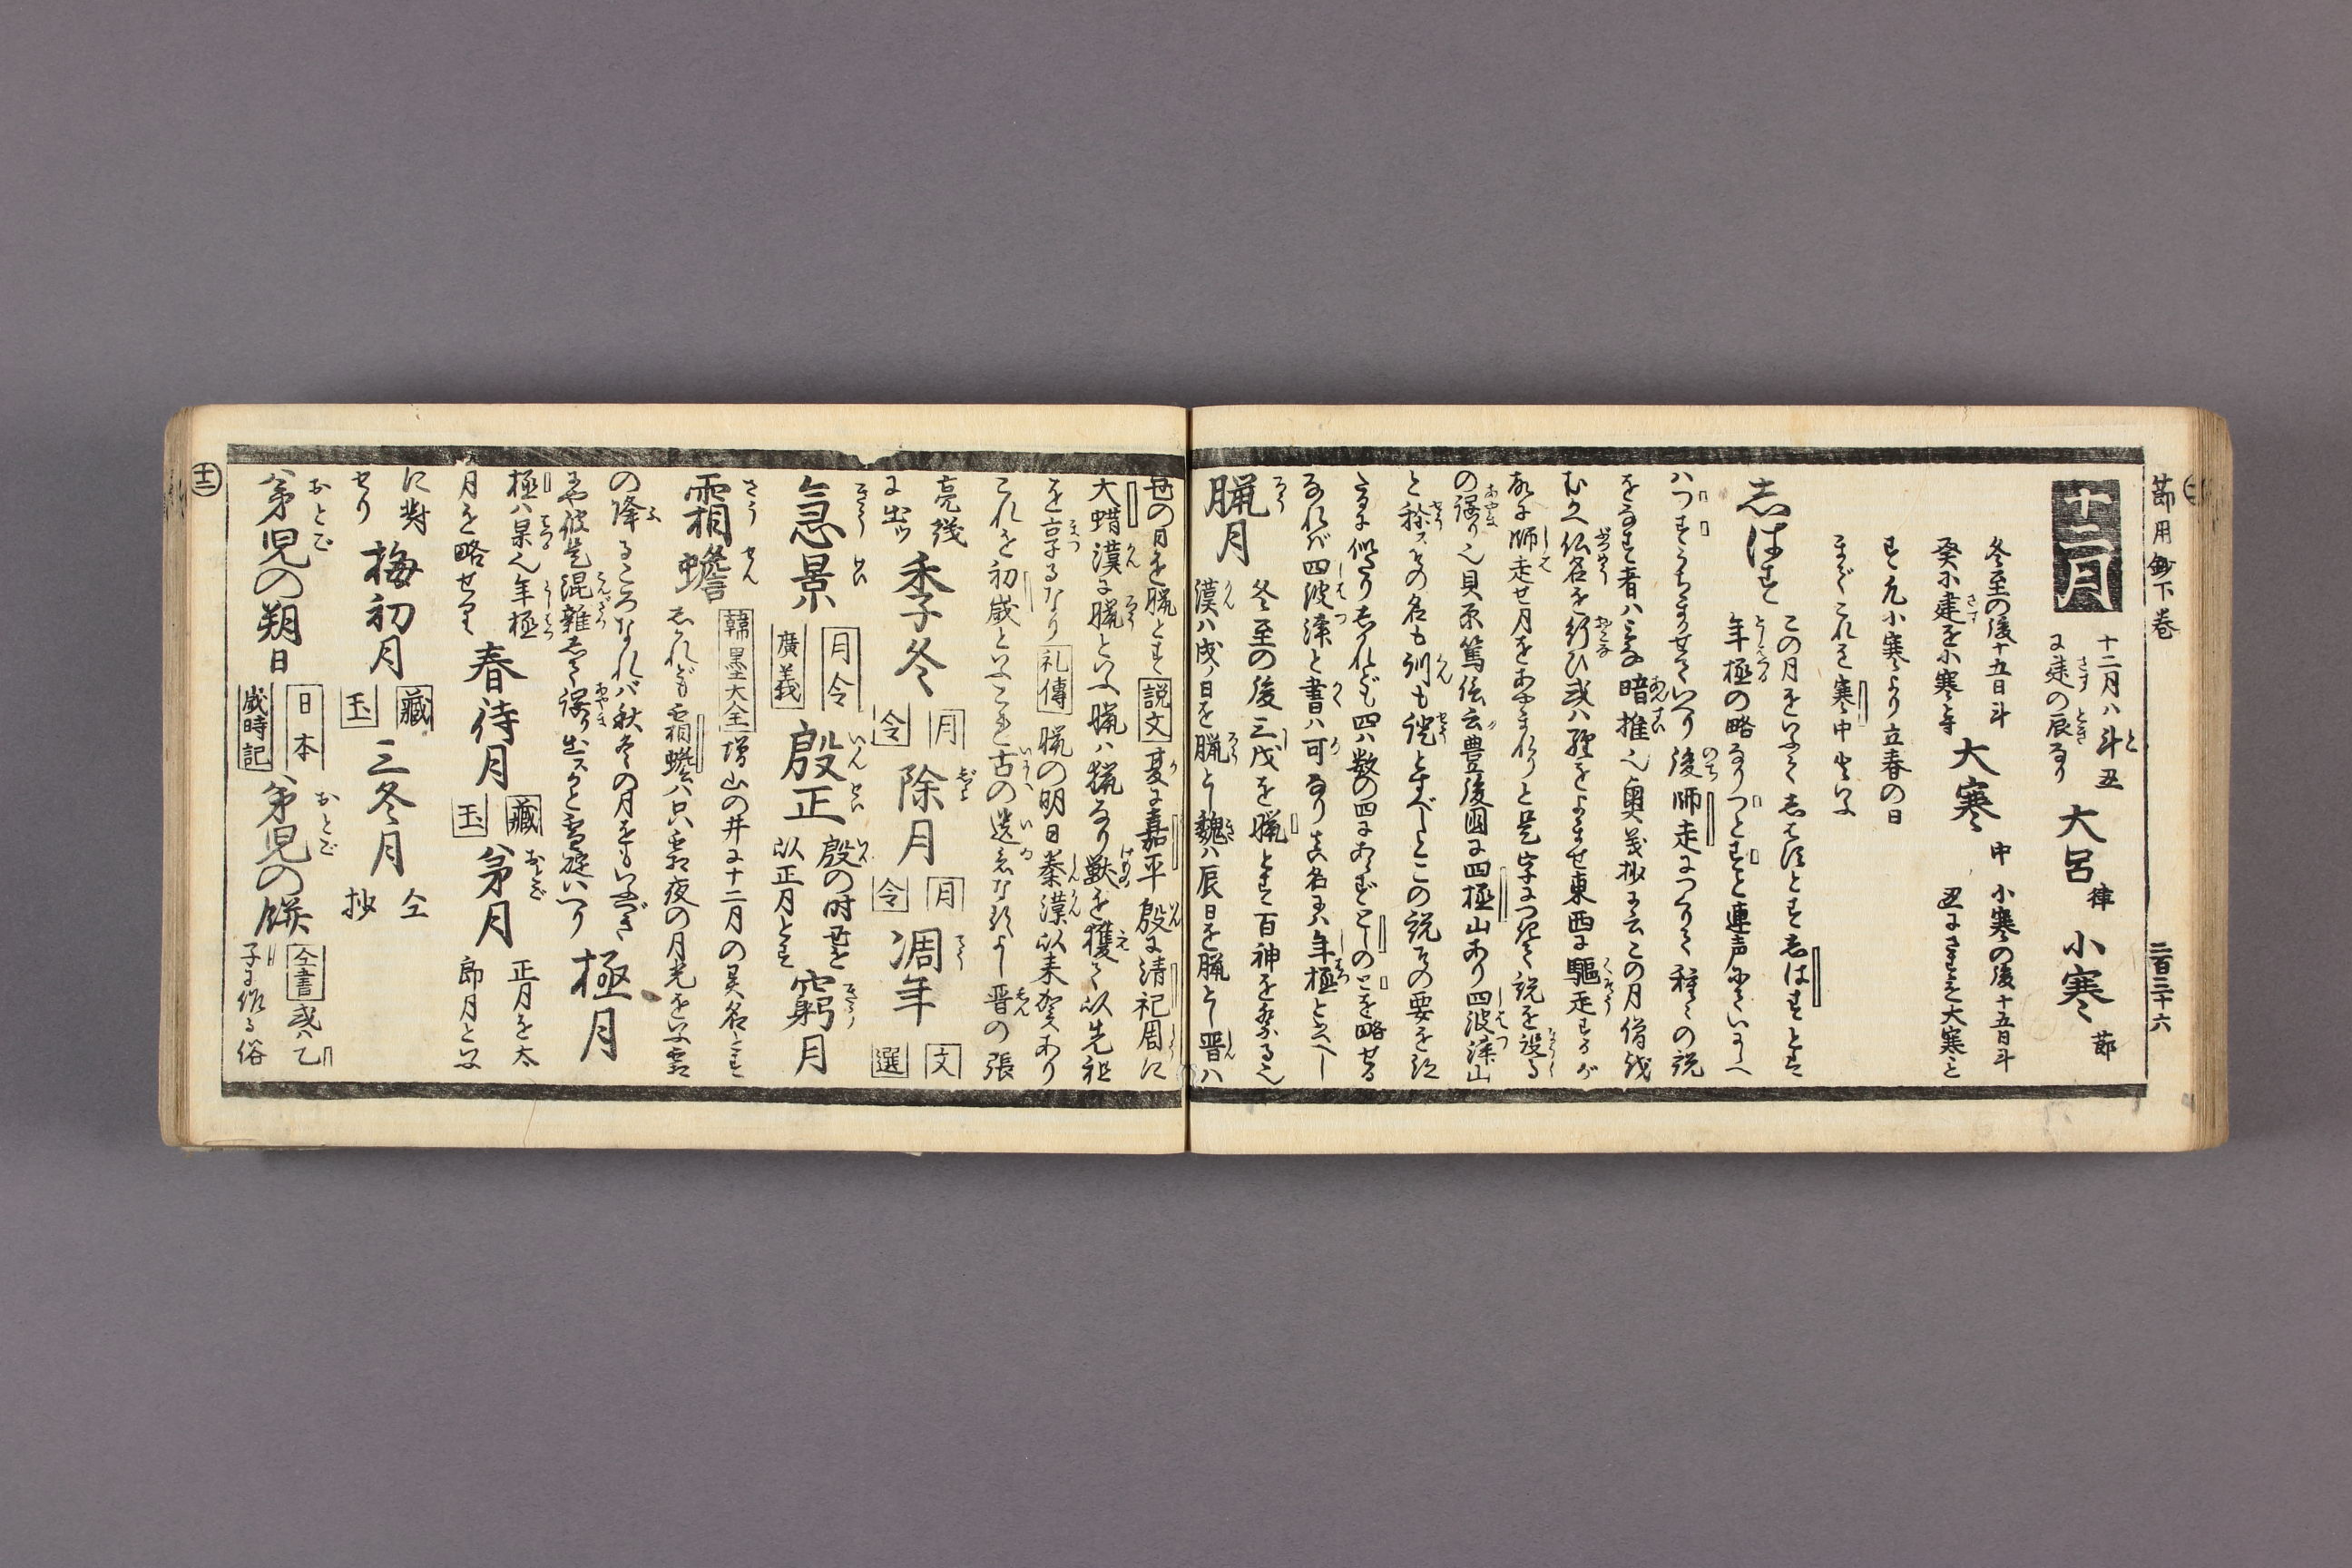 節用鈔下巻
二百三十六
十二月
十二月ハ斗丑
に建の辰なり
大呂 律 小寒 節
冬至の後十五日斗
癸に建を小寒とす
大寒 中
小寒の後十五日斗
丑にさすを大寒と
す凡小寒より立春の日
までこれを寒中といふ
志はす
この月をいふてしはすとすしはすとは
年極の略なりつとすと連声にていにしへ
ハつすうちまかせていへり後師走につくりて種々の説
をなす者ハみな暗推也奥義抄に云この月僧
むかへ仏名を行ひ或ハ経をよませ東西に馳走するが
故に師走せ月をあやまれりと是字につきて説を設る
の誤り也貝原篤信云豊後国に四極山あり四波津山
と称スその名も訓も証とすべしとこの説その要を
たるに似たりしかれども四ハ数の四にあらずとしのとを略せる
なれバ四波津と書ハ可なり真名にハ年極とかくべし
臘月
冬至の後三戌を臘とす百神を祭る也
漢ハ戌ノ日を臘とし魏ハ辰日を臘とし晋ハ
丑の日を臘とす 説文 夏に嘉平殷に清祀周に
大蜡漢に臘といふ臘ハ猟なり獣を獲て以先祖
を享るなり 礼傳 臘の明日秦漢以来賀あり
これを初歳といふこれ古の遺なるよし晋の張
亮
に出ツ
季冬 月令
除月 月令
凋年 文選
急景 月令廣義
殷正
殷の時丑を
以正月とす
窮月
霜蟾
韓墨大全 増山の井に十二月の異名とす
しかれども霜蟾ハ只霜夜の月光をいふ霜
の降るころなれバ秋冬の月をもいふべき
にや彼是混雑して誤り出スかと雪碇いへり
極月
極ハ果也年極
月を略せり
春待月 藏玉
弟月
正月を太
郎月といふ
に對
せり
梅初月 藏玉
三冬月 仝抄
弟児の朔日 日本歳時記
弟児の餅 仝書
或ハ乙
子に作る俗
十二